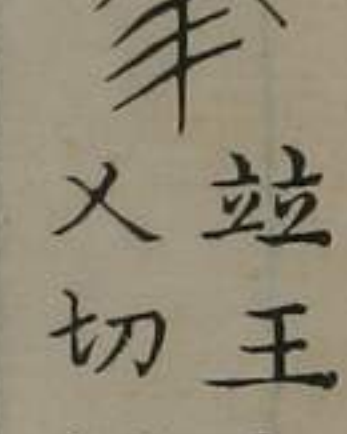 竝王
乂切